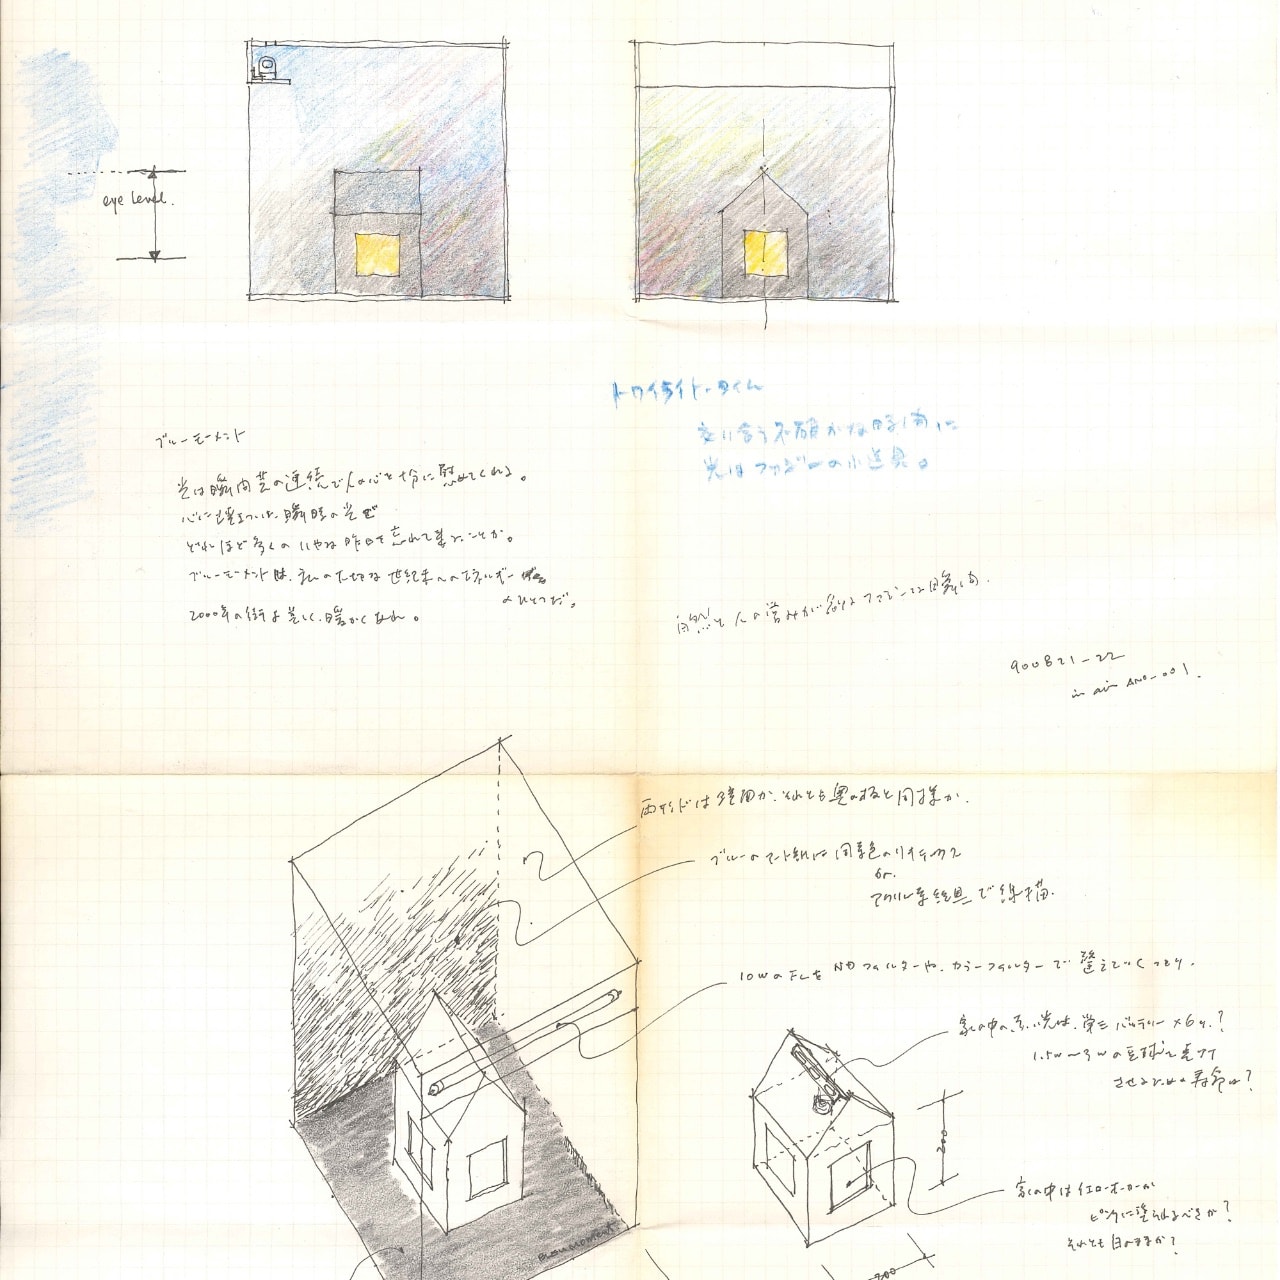 eye level.
トワイライト・タイム
交い合う不確かな時間に
光はファジーの小道具。
ブルーモーメント
光は瞬間芸の連続で人の心を十分に慰めてくれる。
心に留まった瞬時の光で
どれほど多くのいやな昨日を忘れて来たことか。
ブルーモーメントは、私の大切な世紀末へのエネルギー
のひとつだ。
2000年の街よ美しく、暖かくあれ。
自然と人の営みが創るファジーな時間
900821-22
in air ANO-001.
両サイドは鏡面か、それとも奥の板と同様か.
ブルーのマート紙は同景色のリキテックス
or.
アクリル系絵具で線描.
10WのFLをNDフィルターや、カラーフィルターで整えていくつもり.
家の中の赤い光は、単三バッテリー×6ヶ?
1.5W〜3Wの豆球を点灯
させるための寿命は?
200
家の中はイエローオーカーか
ピンクに塗られるべきか?
それとも白のままか?
Blaumoment
200